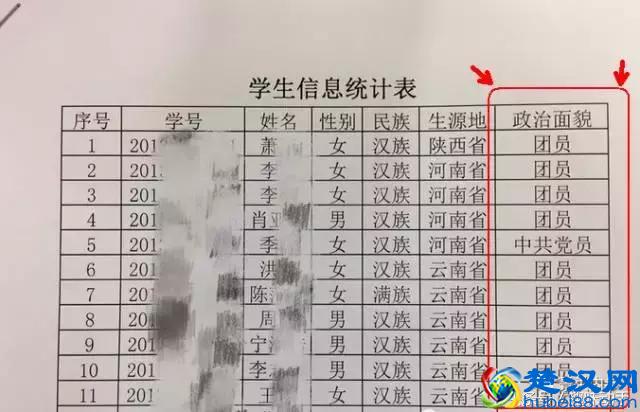 学生信息统计表
序号 学号 姓名 性别 民族 生源地 政治面貌
1 201 萧 女 汉族 陕西省 团员
2 201 李 女 汉族 河南省 团员
3 201 李 女 汉族 河南省 团员
4 201 肖 男 汉族 河南省 团员
5 201 季 女 汉族 河南省 中共党员
6 201 洪 女 汉族 云南省 团员
7 201 陈 女 满族 云南省 团员
8 201 周 男 汉族 云南省 团员
9 201 宁 男 汉族 云南省 团员
10 201 李 男 汉族 云南省 团员
11 201 王 女 汉族 云南省
楚汉网
hubei88.com